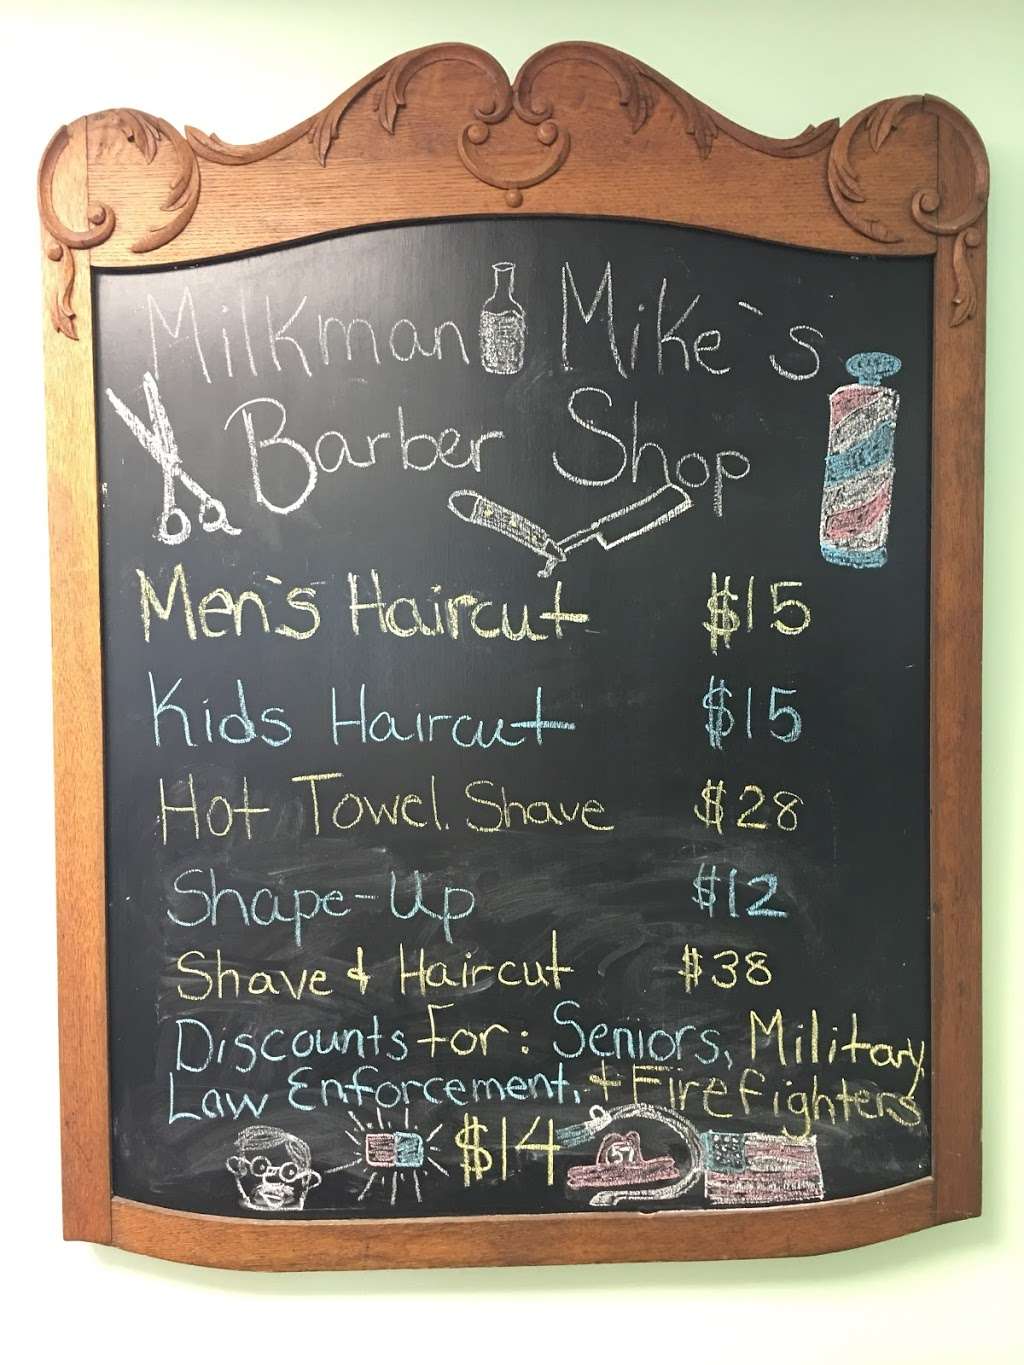 Milkman Mike's
Barber Shop
Men's Haircut $15
Kids Haircut $15
Hot Towel Shave $28
Shape-Up $12
Shave & Haircut $38
Discounts For: Seniors, Military,
Law Enforcement, & Firefighters
$14
57